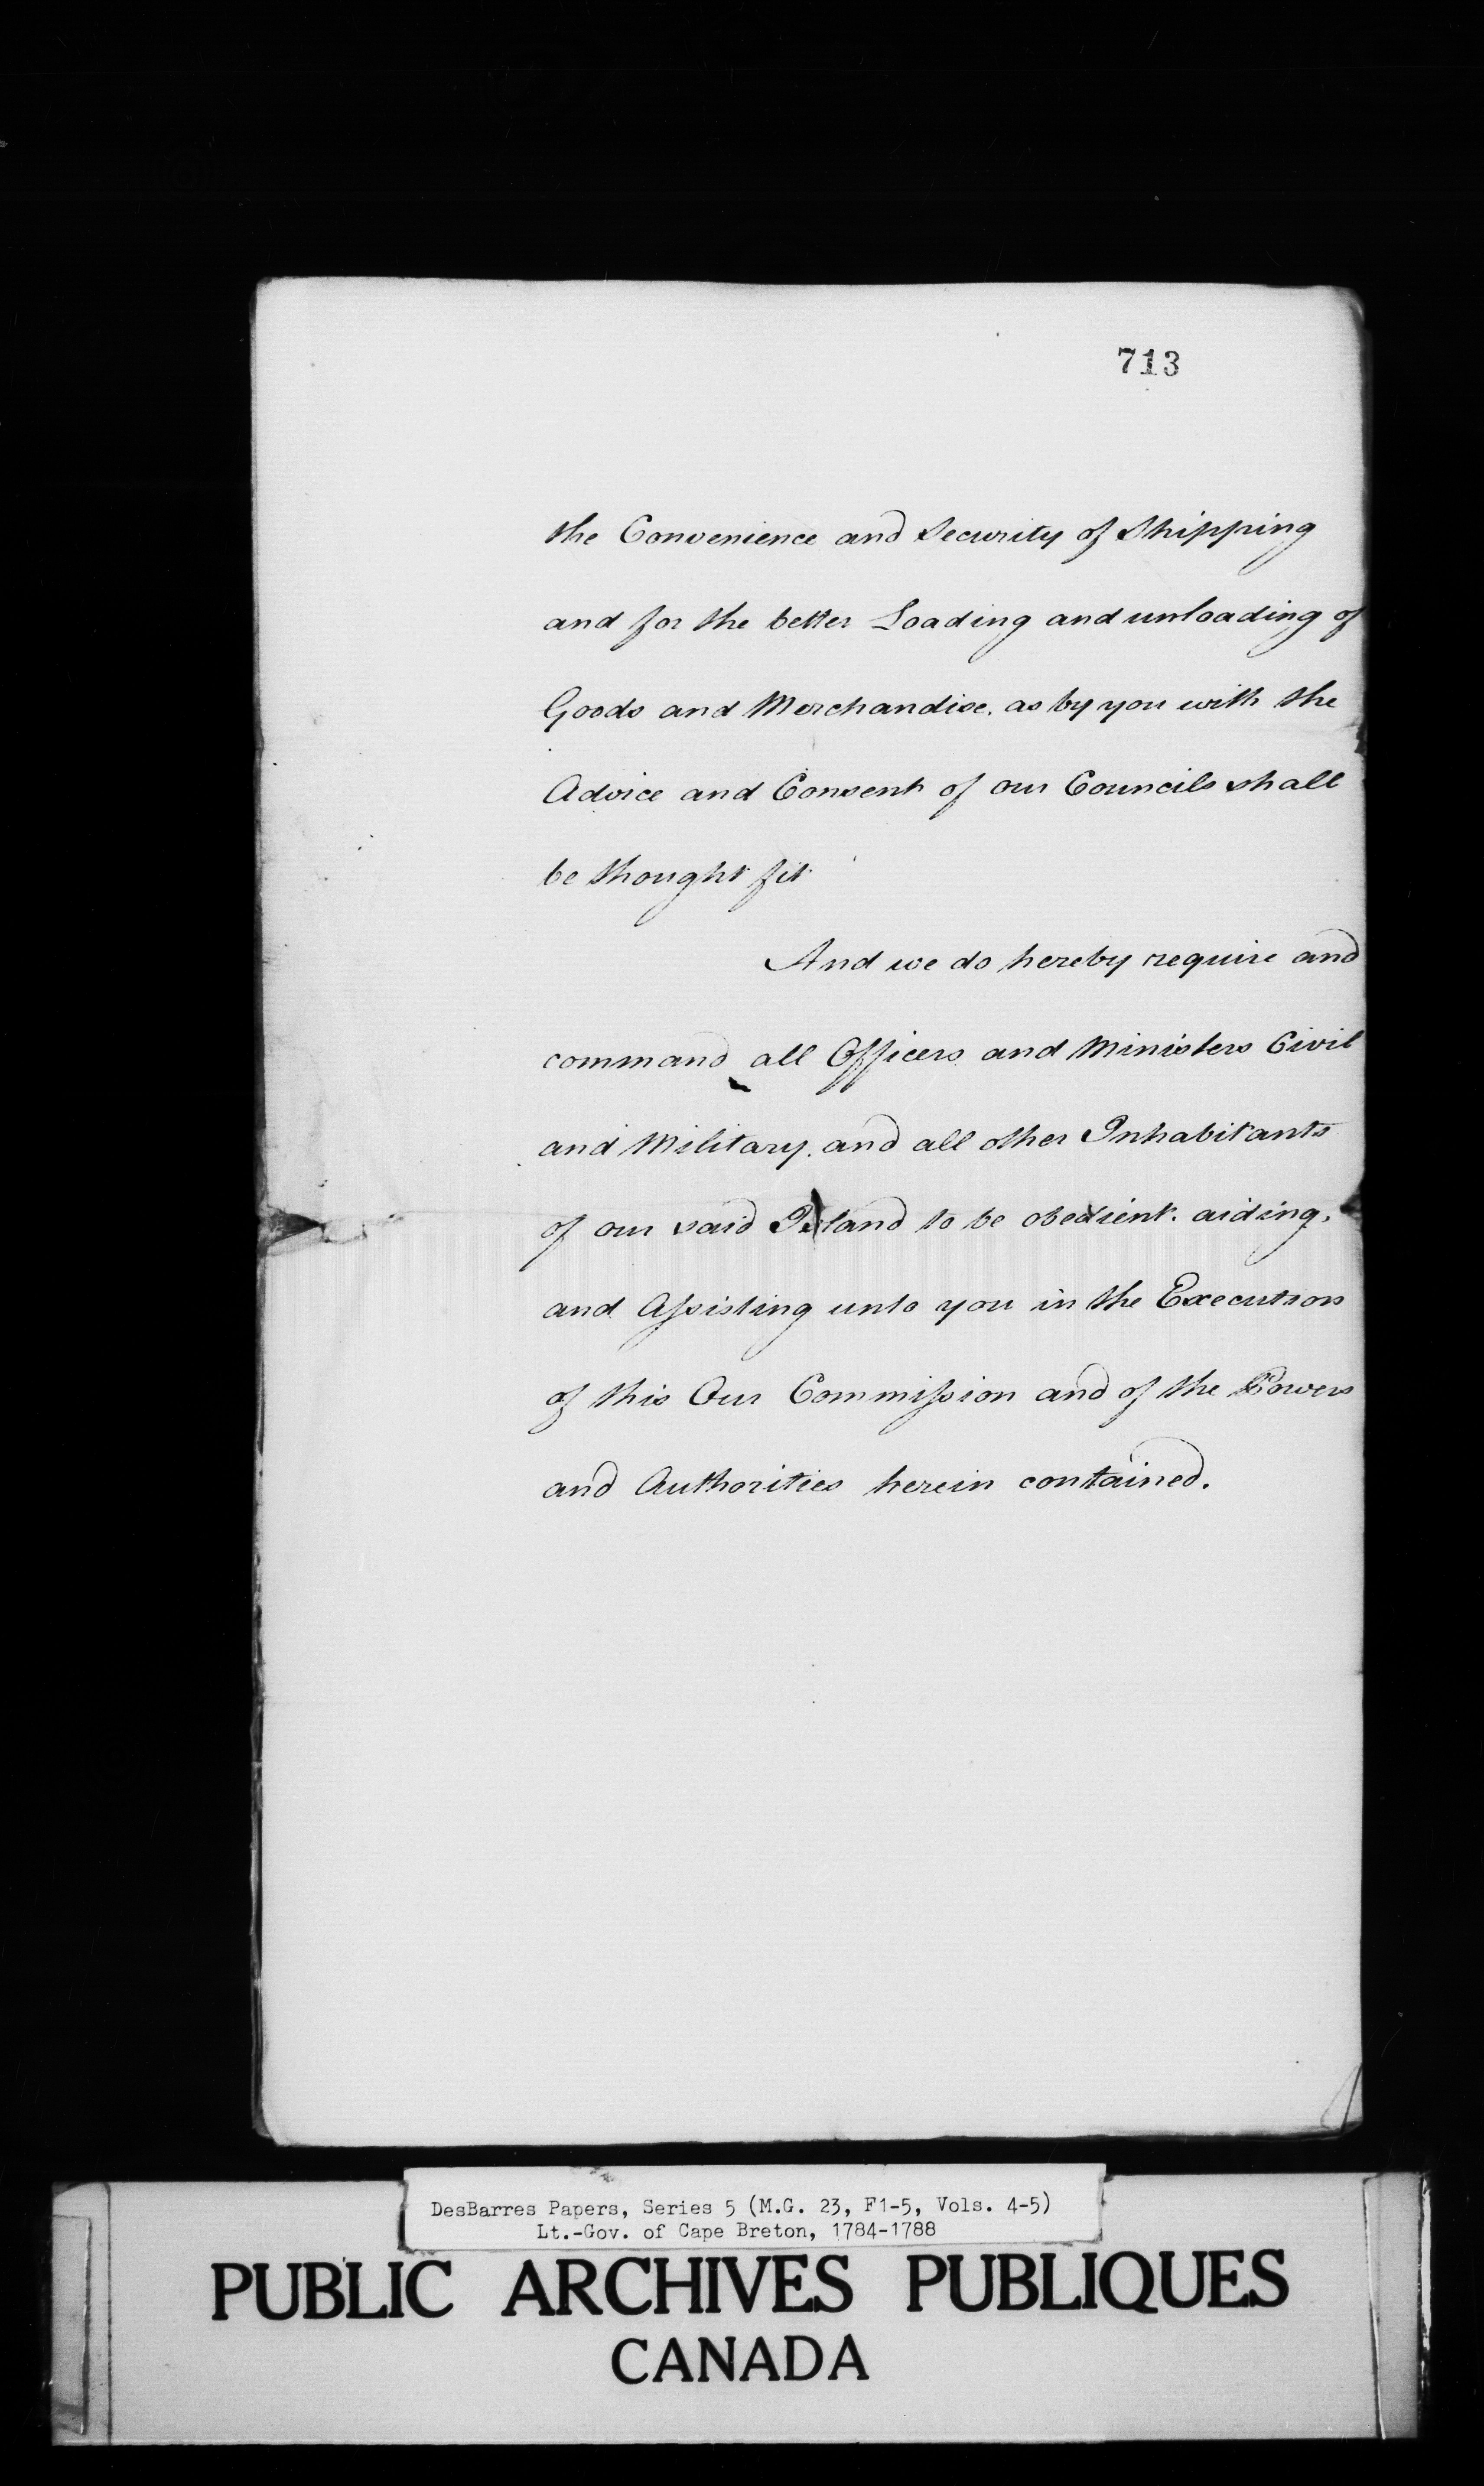 713
the Convenience and Security of Shipping
and for the better Loading and unloading of
Goods and Merchandise. as by you with the
Advice and Consent of our Councils shall
be thought fit
And we do hereby require and
command all Officers and Ministers Civil
and Military. and all other Inhabitants
of our said Island to be obedient. aiding,
and Aſsisting unto you in the Execution
of this Our Commiſsion and of the Powers
and Authorities herein contained.
DesBarres Papers, Series 5 (M.G. 23, F1-5, Vols. 4-5)
Lt.-Gov. of Cape Breton, 1784-1788
PUBLIC ARCHIVES PUBLIQUES
CANADA